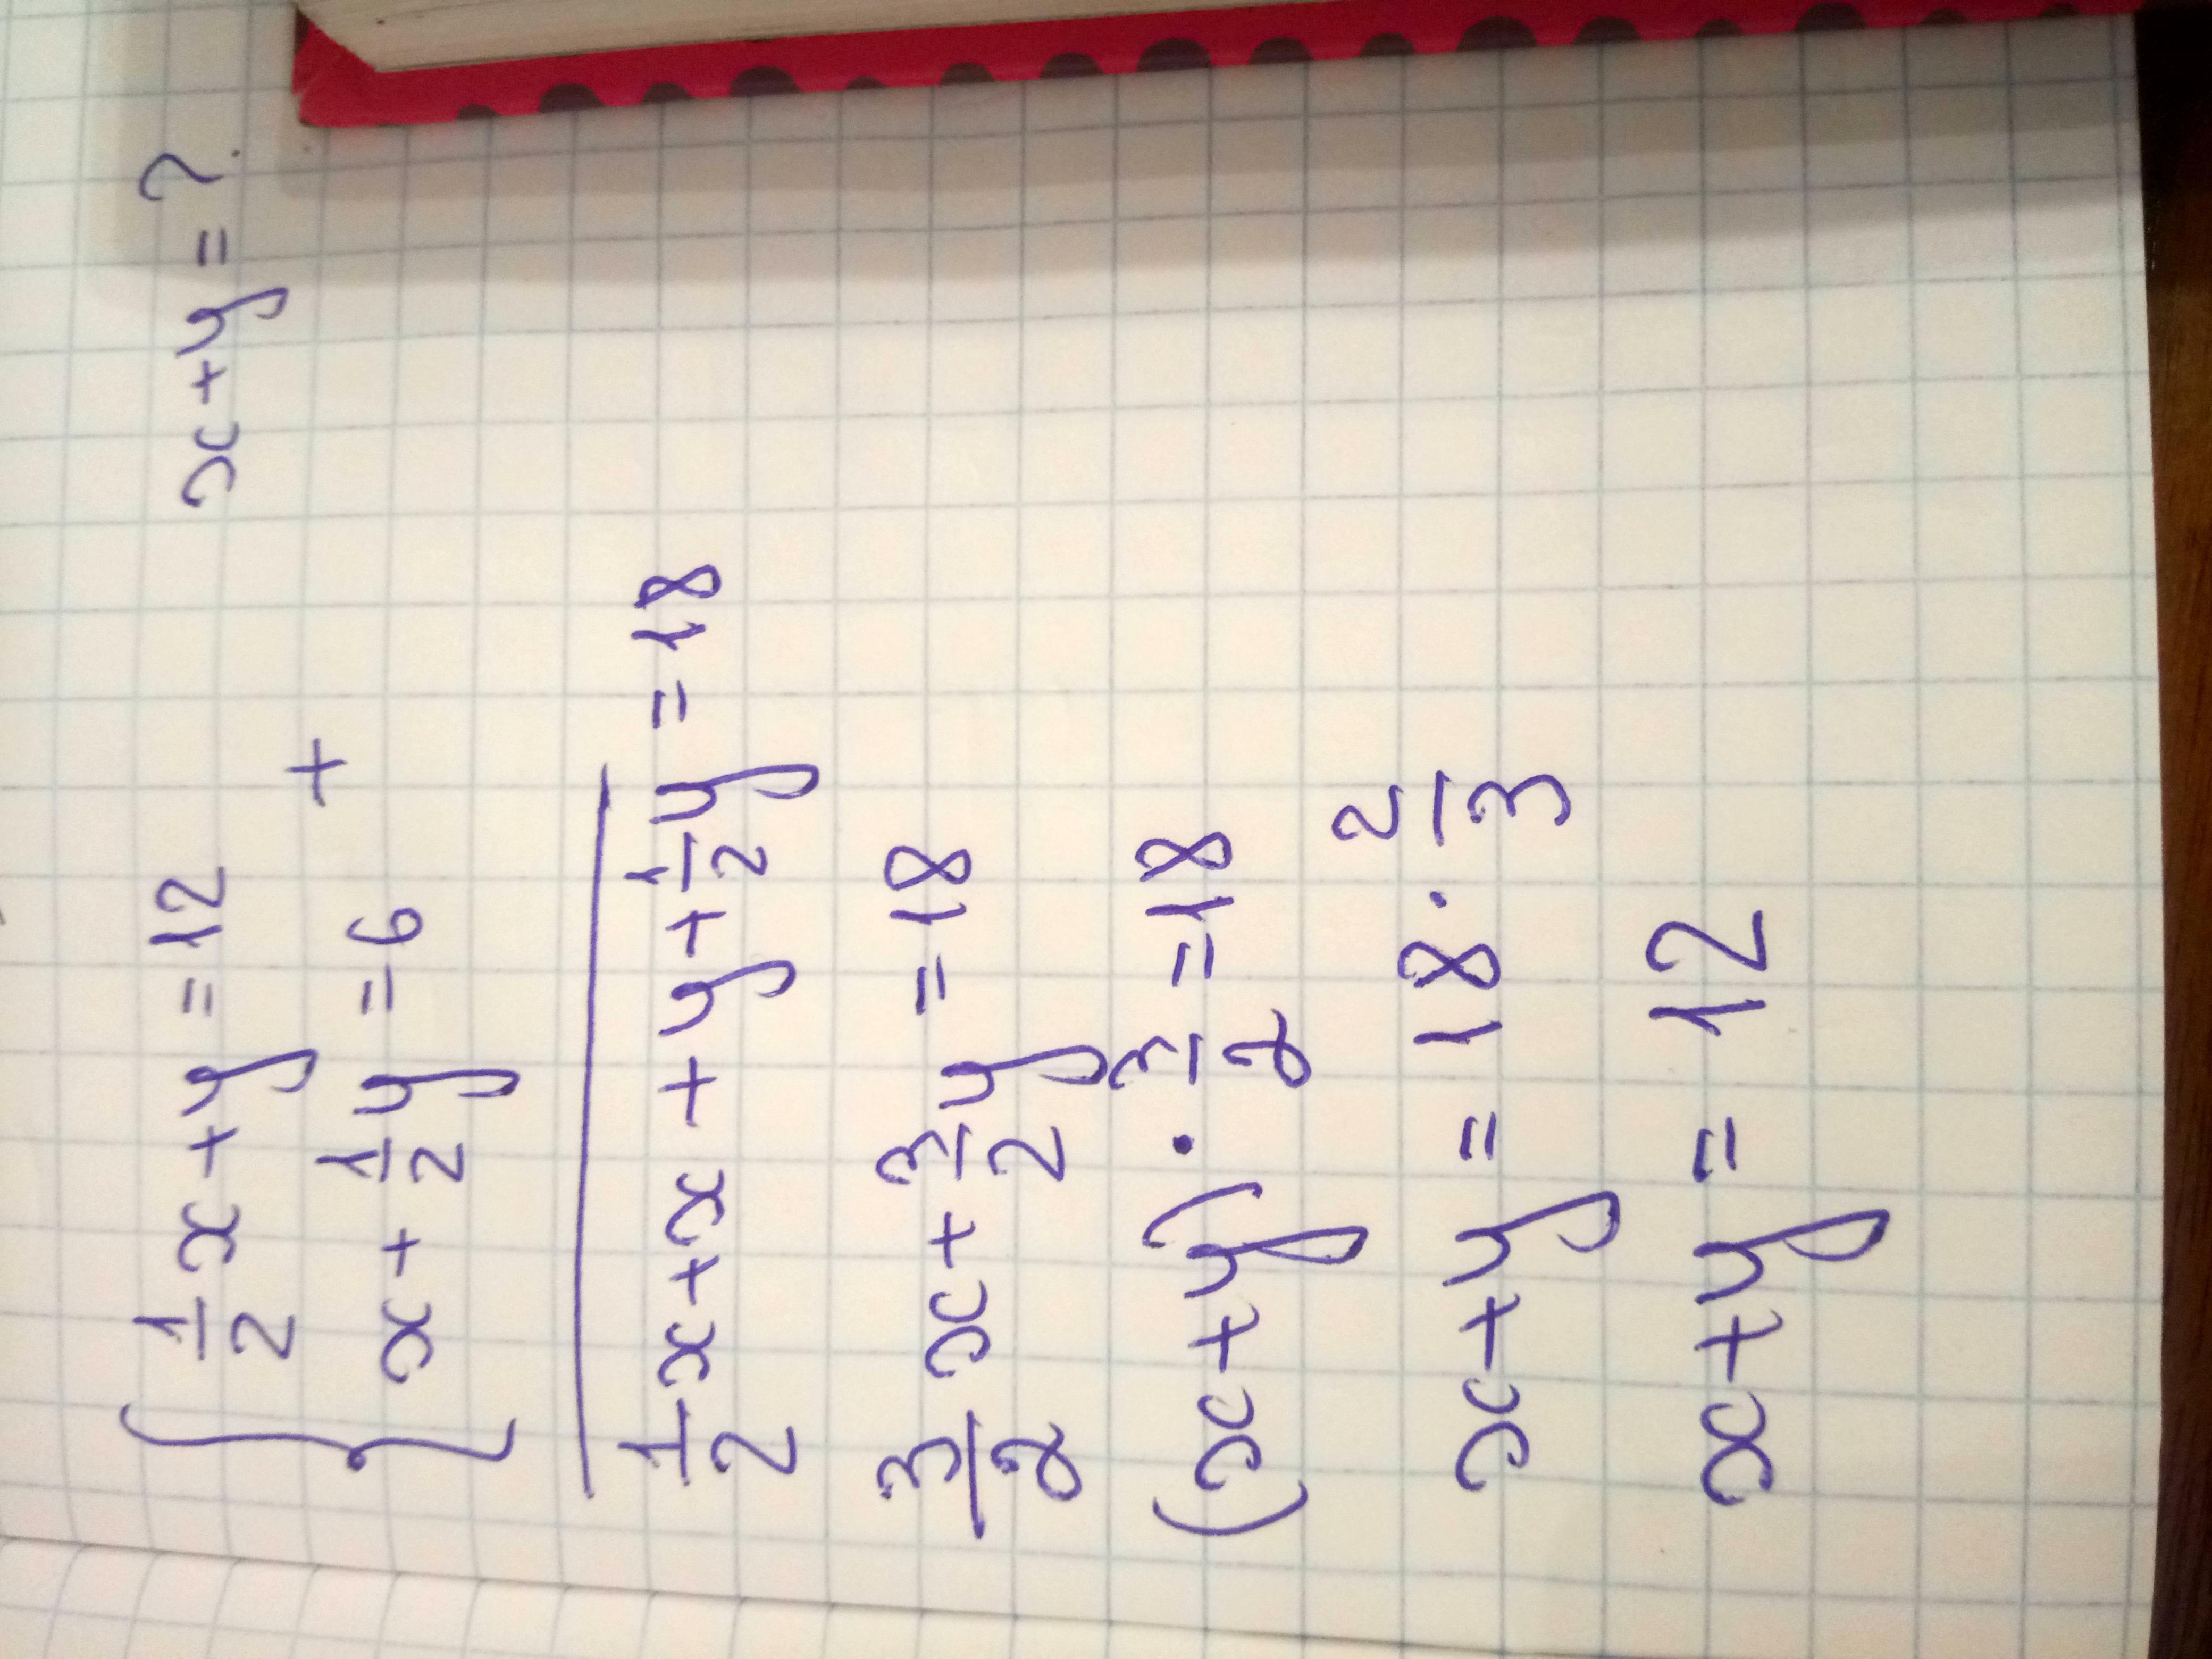 1/2 x + y = 12    x + y = ?
x + 1/2 y = 6    +
1/2 x + x + y + 1/2 y = 18
3/2 x + 3/2 y = 18
(x + y) · 3/2 = 18
x + y = 18 · 2/3
x + y = 12